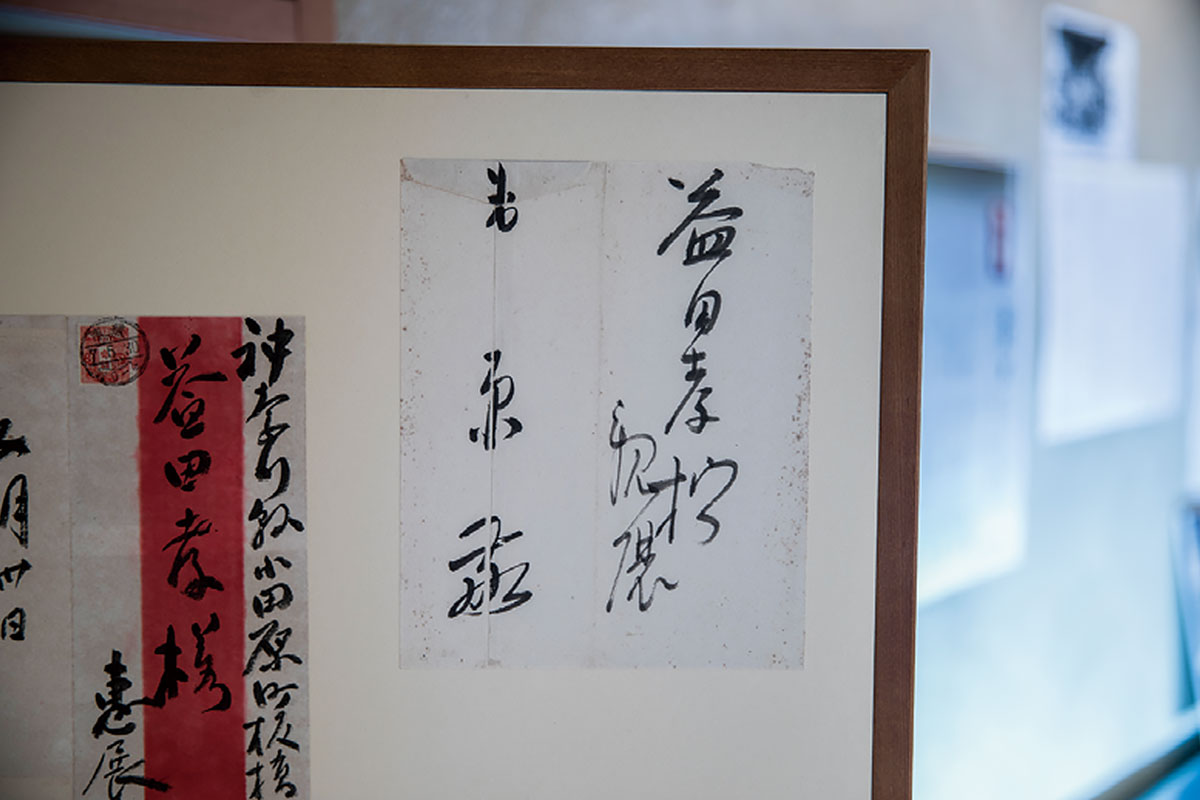 益田孝様
親展
神奈川縣小田原町板橋
益田孝様
惠展
月卅日